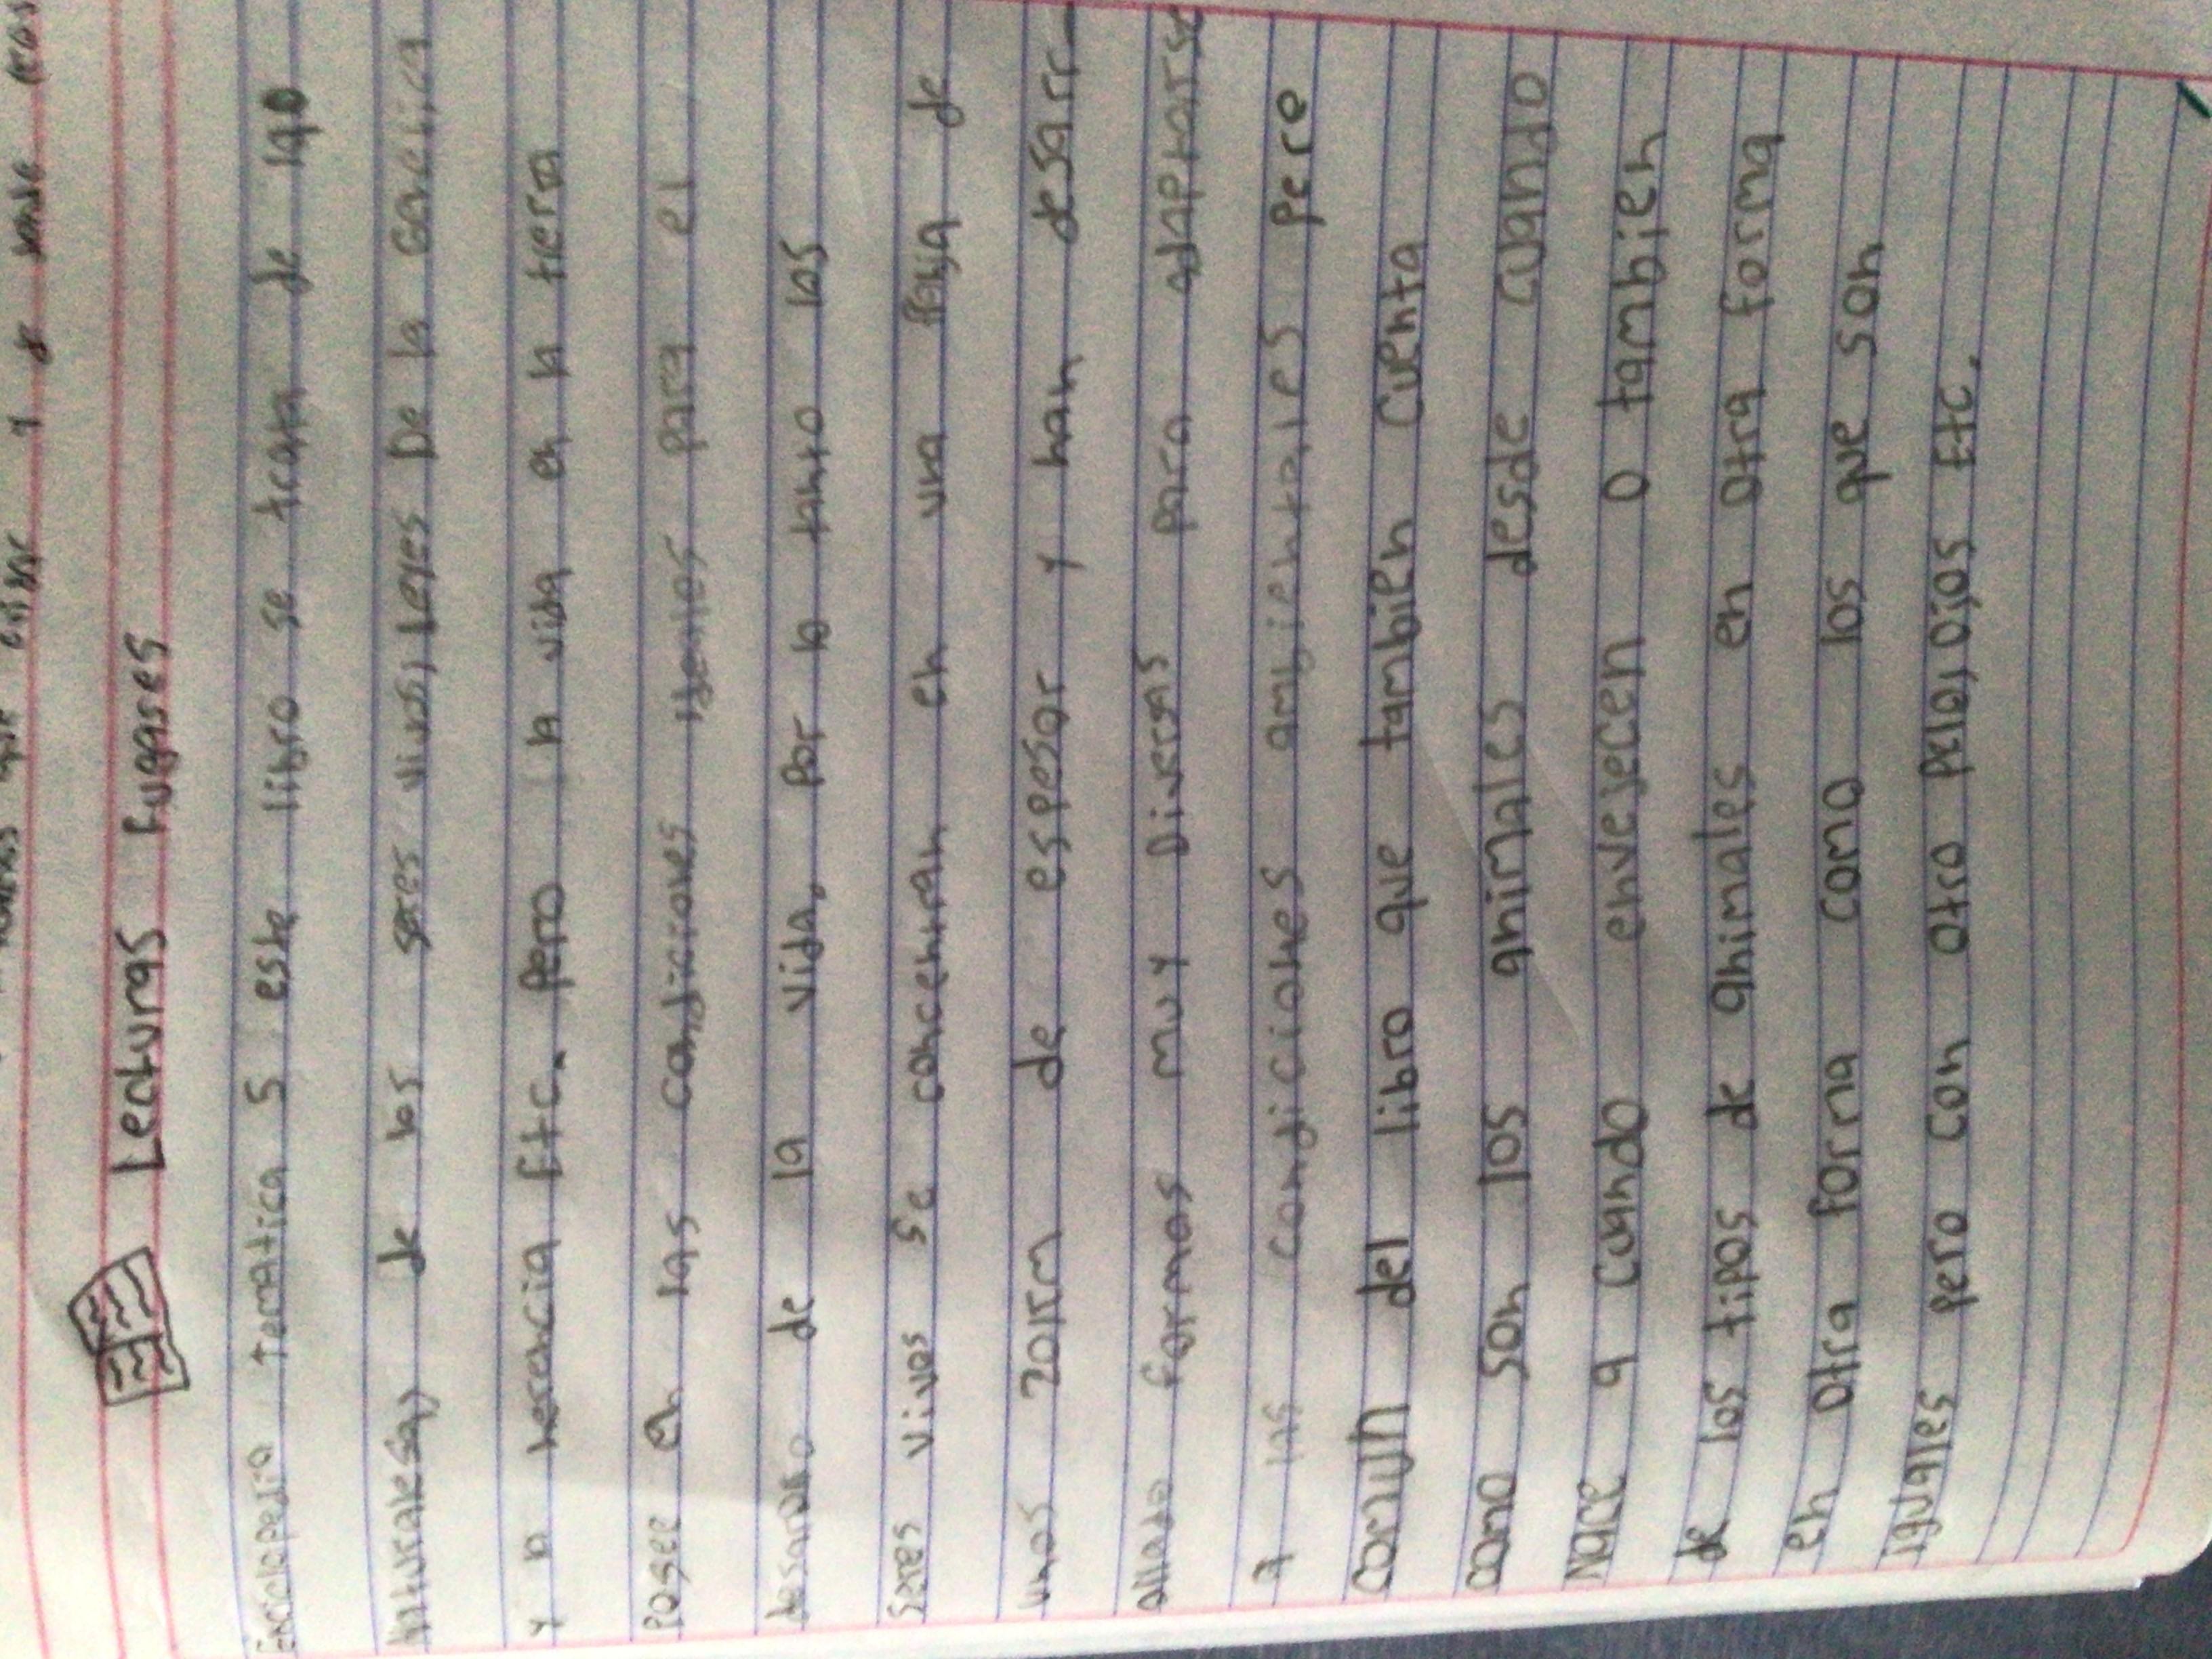 Lecturas Fugases
Enciclopedia Tematica 5 este libro se trata de la
Naturalesa, de los seres vivos, Leyes De la Genetica
y la herencia Etc. Pero la vida en la tierra
Posee en las condiciones ideales para el
desarrollo de la vida, Por lo tanto los
Seres vivos se concentran en una de
unos 20Km de espesor y han desarr-
ollado formas muy Diversas para adaptarse
a las condiciones ambientales pere
Comun del libro que tambien cuenta
como son los animales desde cuando
Nace a cuando envejecen o tambien
de los tipos de animales en otra forma
en otra forma como los que son
iguales pero con otro pelo, ojos Etc.